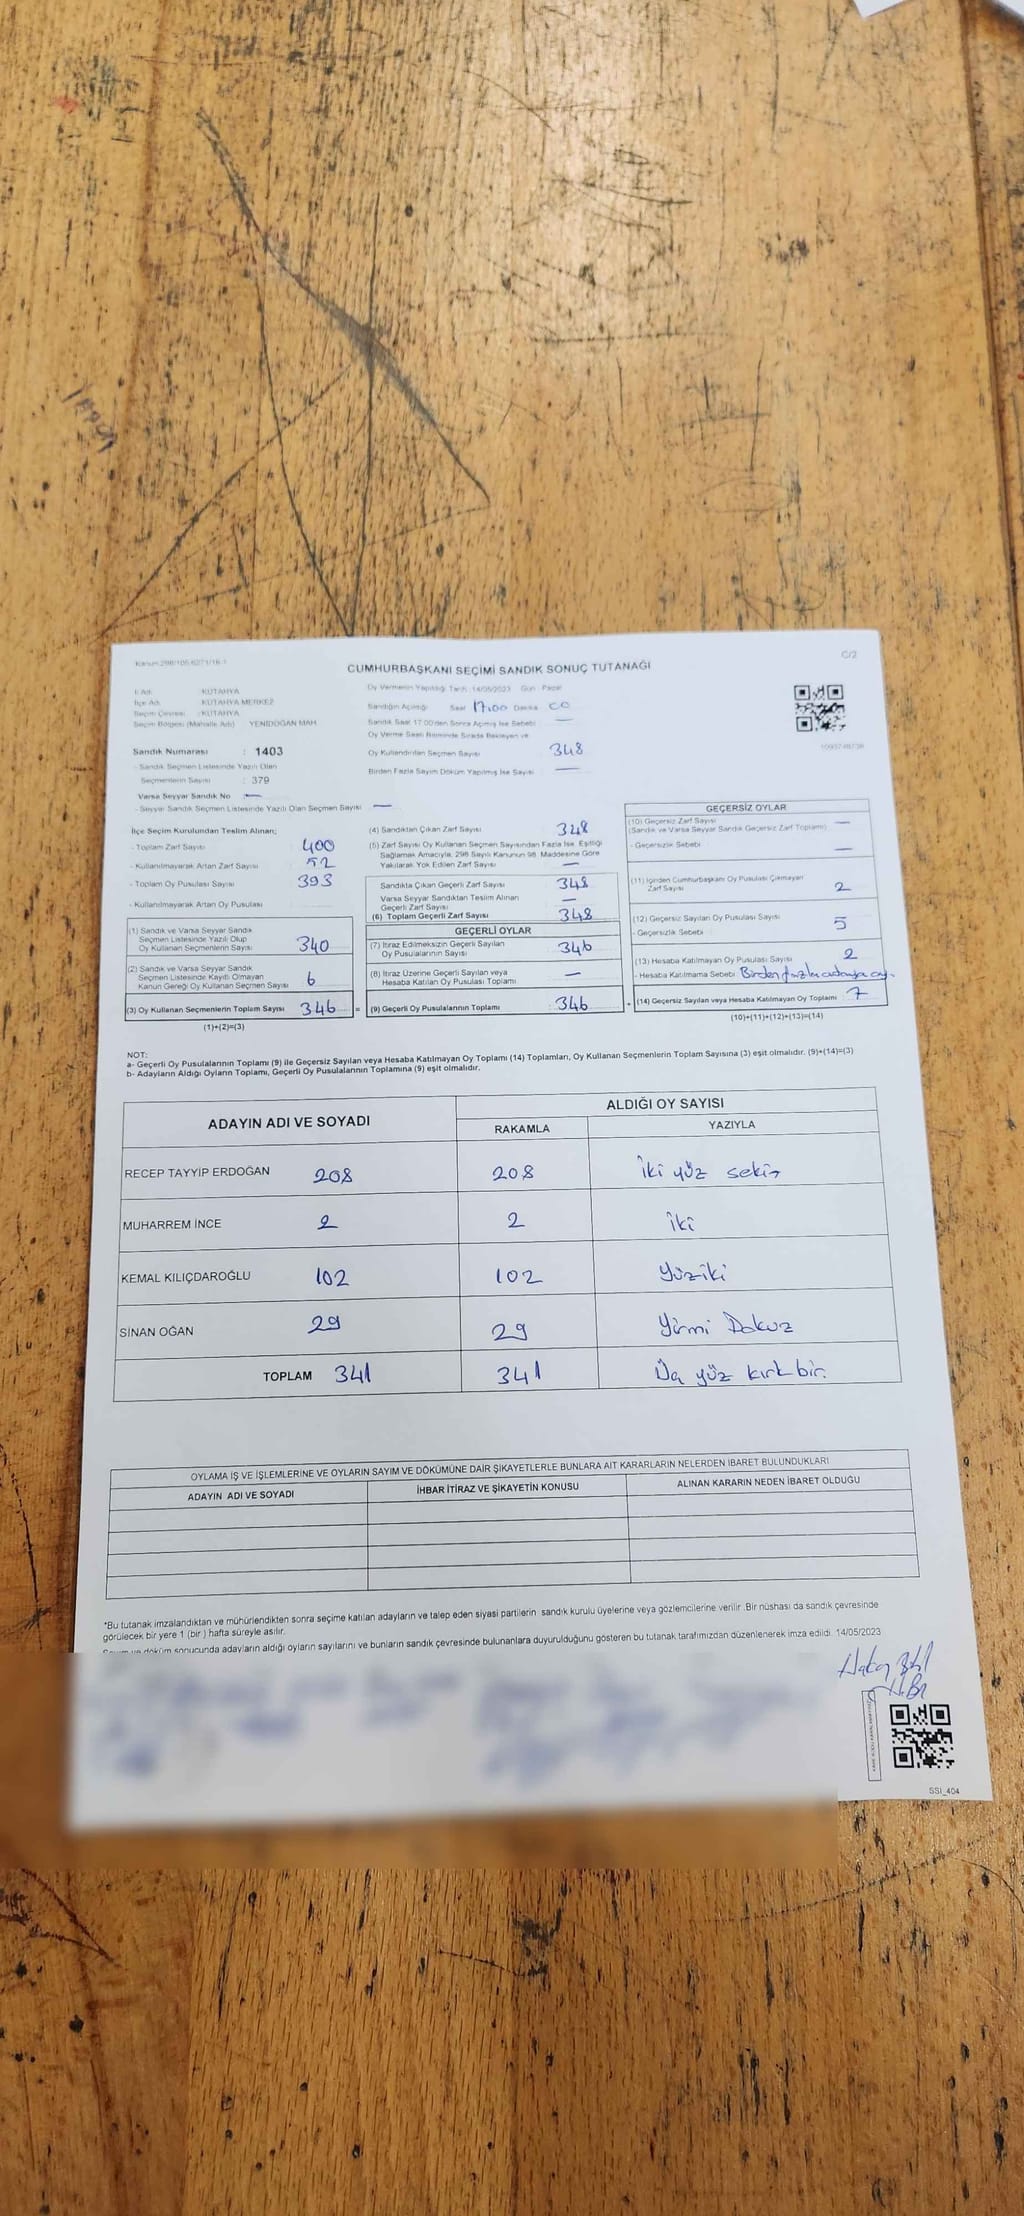 Kanun:298/105,6271/16-1
C/2
CUMHURBAŞKANI SEÇİMİ SANDIK SONUÇ TUTANAĞI
İl Adı : KÜTAHYA
İlçe Adı : KÜTAHYA MERKEZ
Seçim Çevresi : KÜTAHYA
Seçim Bölgesi (Mahalle Adı) : YENİDOĞAN MAH.
Sandık Numarası : 1403
- Sandık Seçmen Listesinde Yazılı Olan
Seçmenlerin Sayısı : 379
Varsa Seyyar Sandık No —
- Seyyar Sandık Seçmen Listesinde Yazılı Olan Seçmen Sayısı —
Oy Vermenin Yapıldığı Tarih: 14/05/2023 Gün : Pazar
Sandığın Açıldığı Saat 17.00 Dakika 00
Sandık Saat 17:00'den Sonra Açılmış İse Sebebi —
Oy Verme Saati Bitiminde Sırada Bekleyen ve
Oy Kullandırılan Seçmen Sayısı 348
Birden Fazla Sayım Döküm Yapılmış İse Sayısı —
İlçe Seçim Kurulundan Teslim Alınan;
- Toplam Zarf Sayısı 400
- Kullanılmayarak Artan Zarf Sayısı 52
- Toplam Oy Pusulası Sayısı 393
- Kullanılmayarak Artan Oy Pusulası
(1) Sandık ve Varsa Seyyar Sandık
Seçmen Listesinde Yazılı Olup
Oy Kullanan Seçmenlerin Sayısı 340
(2) Sandık ve Varsa Seyyar Sandık
Seçmen Listesinde Kayıtlı Olmayan
Kanun Gereği Oy Kullanan Seçmen Sayısı 6
(3) Oy Kullanan Seçmenlerin Toplam Sayısı 346
(1)+(2)=(3)
(4) Sandıktan Çıkan Zarf Sayısı 348
(5) Zarf Sayısı Oy Kullanan Seçmen Sayısından Fazla İse, Eşitliği
Sağlamak Amacıyla, 298 Sayılı Kanunun 98. Maddesine Göre
Yakılarak Yok Edilen Zarf Sayısı —
Sandıkta Çıkan Geçerli Zarf Sayısı 348
Varsa Seyyar Sandıktan Teslim Alınan
Geçerli Zarf Sayısı —
(6) Toplam Geçerli Zarf Sayısı 348
GEÇERLİ OYLAR
(7) İtiraz Edilmeksizin Geçerli Sayılan
Oy Pusulalarının Sayısı 346
(8) İtiraz Üzerine Geçerli Sayılan veya
Hesaba Katılan Oy Pusulası Toplamı —
= (9) Geçerli Oy Pusulalarının Toplamı 346
GEÇERSİZ OYLAR
(10) Geçersiz Zarf Sayısı —
(Sandık ve Varsa Seyyar Sandık Geçersiz Zarf Toplamı)
- Geçersizlik Sebebi —
(11) İçinden Cumhurbaşkanı Oy Pusulası Çıkmayan
Zarf Sayısı 2
(12) Geçersiz Sayılan Oy Pusulası Sayısı 5
- Geçersizlik Sebebi
(13) Hesaba Katılmayan Oy Pusulası Sayısı 2
- Hesaba Katılmama Sebebi Birden fazla adaya oy.
+ (14) Geçersiz Sayılan veya Hesaba Katılmayan Oy Toplamı 7
(10)+(11)+(12)+(13)=(14)
NOT:
a- Geçerli Oy Pusulalarının Toplamı (9) ile Geçersiz Sayılan veya Hesaba Katılmayan Oy Toplamı (14) Toplamları, Oy Kullanan Seçmenlerin Toplam Sayısına (3) eşit olmalıdır. (9)+(14)=(3)
b- Adayların Aldığı Oyların Toplamı, Geçerli Oy Pusulalarının Toplamına (9) eşit olmalıdır.
ADAYIN ADI VE SOYADI
ALDIĞI OY SAYISI
RAKAMLA YAZIYLA
RECEP TAYYİP ERDOĞAN 208 208 İki yüz sekiz
MUHARREM İNCE 2 2 İki
KEMAL KILIÇDAROĞLU 102 102 Yüziki
SİNAN OĞAN 29 29 Yirmi Dokuz
TOPLAM 341 341 Üç yüz kırk bir.
OYLAMA İŞ VE İŞLEMLERİNE VE OYLARIN SAYIM VE DÖKÜMÜNE DAİR ŞİKAYETLERLE BUNLARA AİT KARARLARIN NELERDEN İBARET BULUNDUKLARI
ADAYIN ADI VE SOYADI İHBAR İTİRAZ VE ŞİKAYETİN KONUSU ALINAN KARARIN NEDEN İBARET OLDUĞU
*Bu tutanak imzalandıktan ve mühürlendikten sonra seçime katılan adayların ve talep eden siyasi partilerin sandık kurulu üyelerine veya gözlemcilerine verilir. Bir nüshası da sandık çevresinde
görülecek bir yere 1 (bir ) hafta süreyle asılır.
Sayım ve döküm sonucunda adayların aldığı oyların sayılarını ve bunların sandık çevresinde bulunanlara duyurulduğunu gösteren bu tutanak tarafımızdan düzenlenerek imza edildi. 14/05/2023
SSI_404